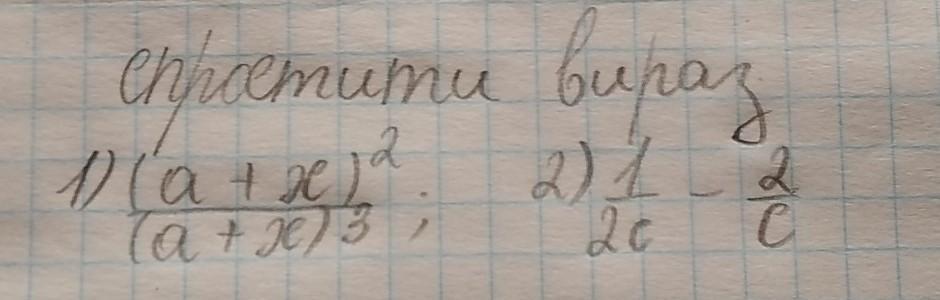 спростити вираз
1) (a + x)² / (a + x)³ ; 2) 1/2c - 2/c